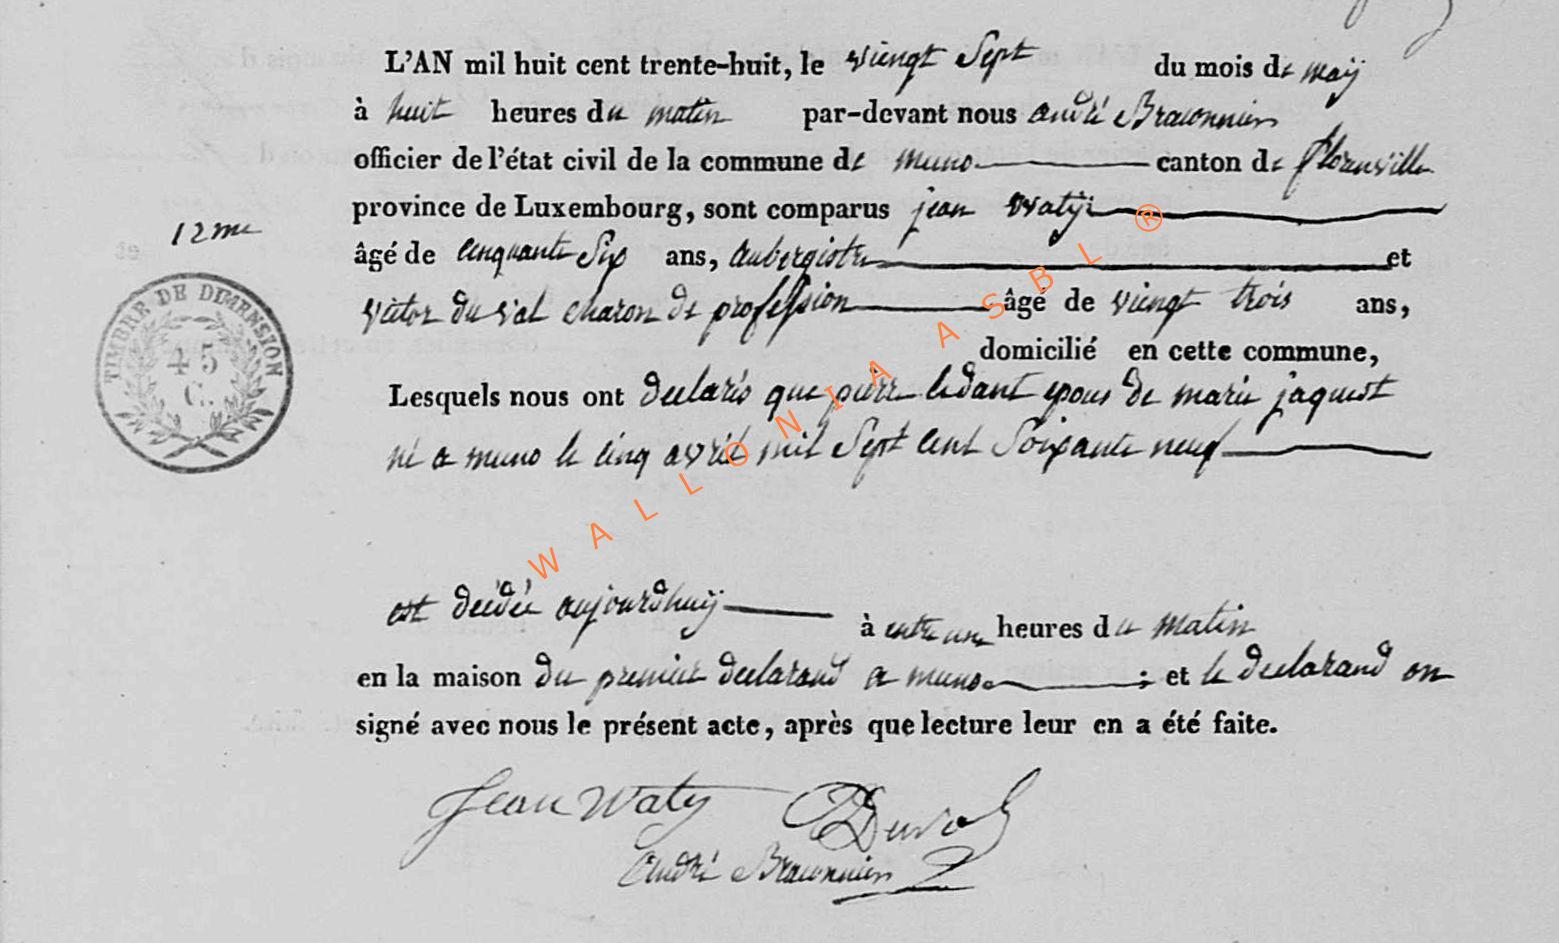 L'AN mil huit cent trente-huit, le viengt Sept du mois de maÿ
à huit heures du matin par-devant nous andré Braconnier
officier de l'état civil de la commune de muno canton de florenville
province de Luxembourg, sont comparus jean Watÿ
12me
âgé de cinquante Six ans, aubergiste et
victor du val charon de profession âgé de viengt trois ans,
domicilié en cette commune,
TIMBRE DE DIMENSION
45
C.
Lesquels nous ont declarés que pierre ledant epous de marie jaquest
né a muno le cinq avril mil Sept cent Soixante neuf
est decedée aujourdhuÿ
à heures du matin
en la maison du premier declarand a muno ; et le declarand on
signé avec nous le présent acte, après que lecture leur en a été faite.
Jean Waty Duval
andré Braconnier
WALLONIA ASBL ®